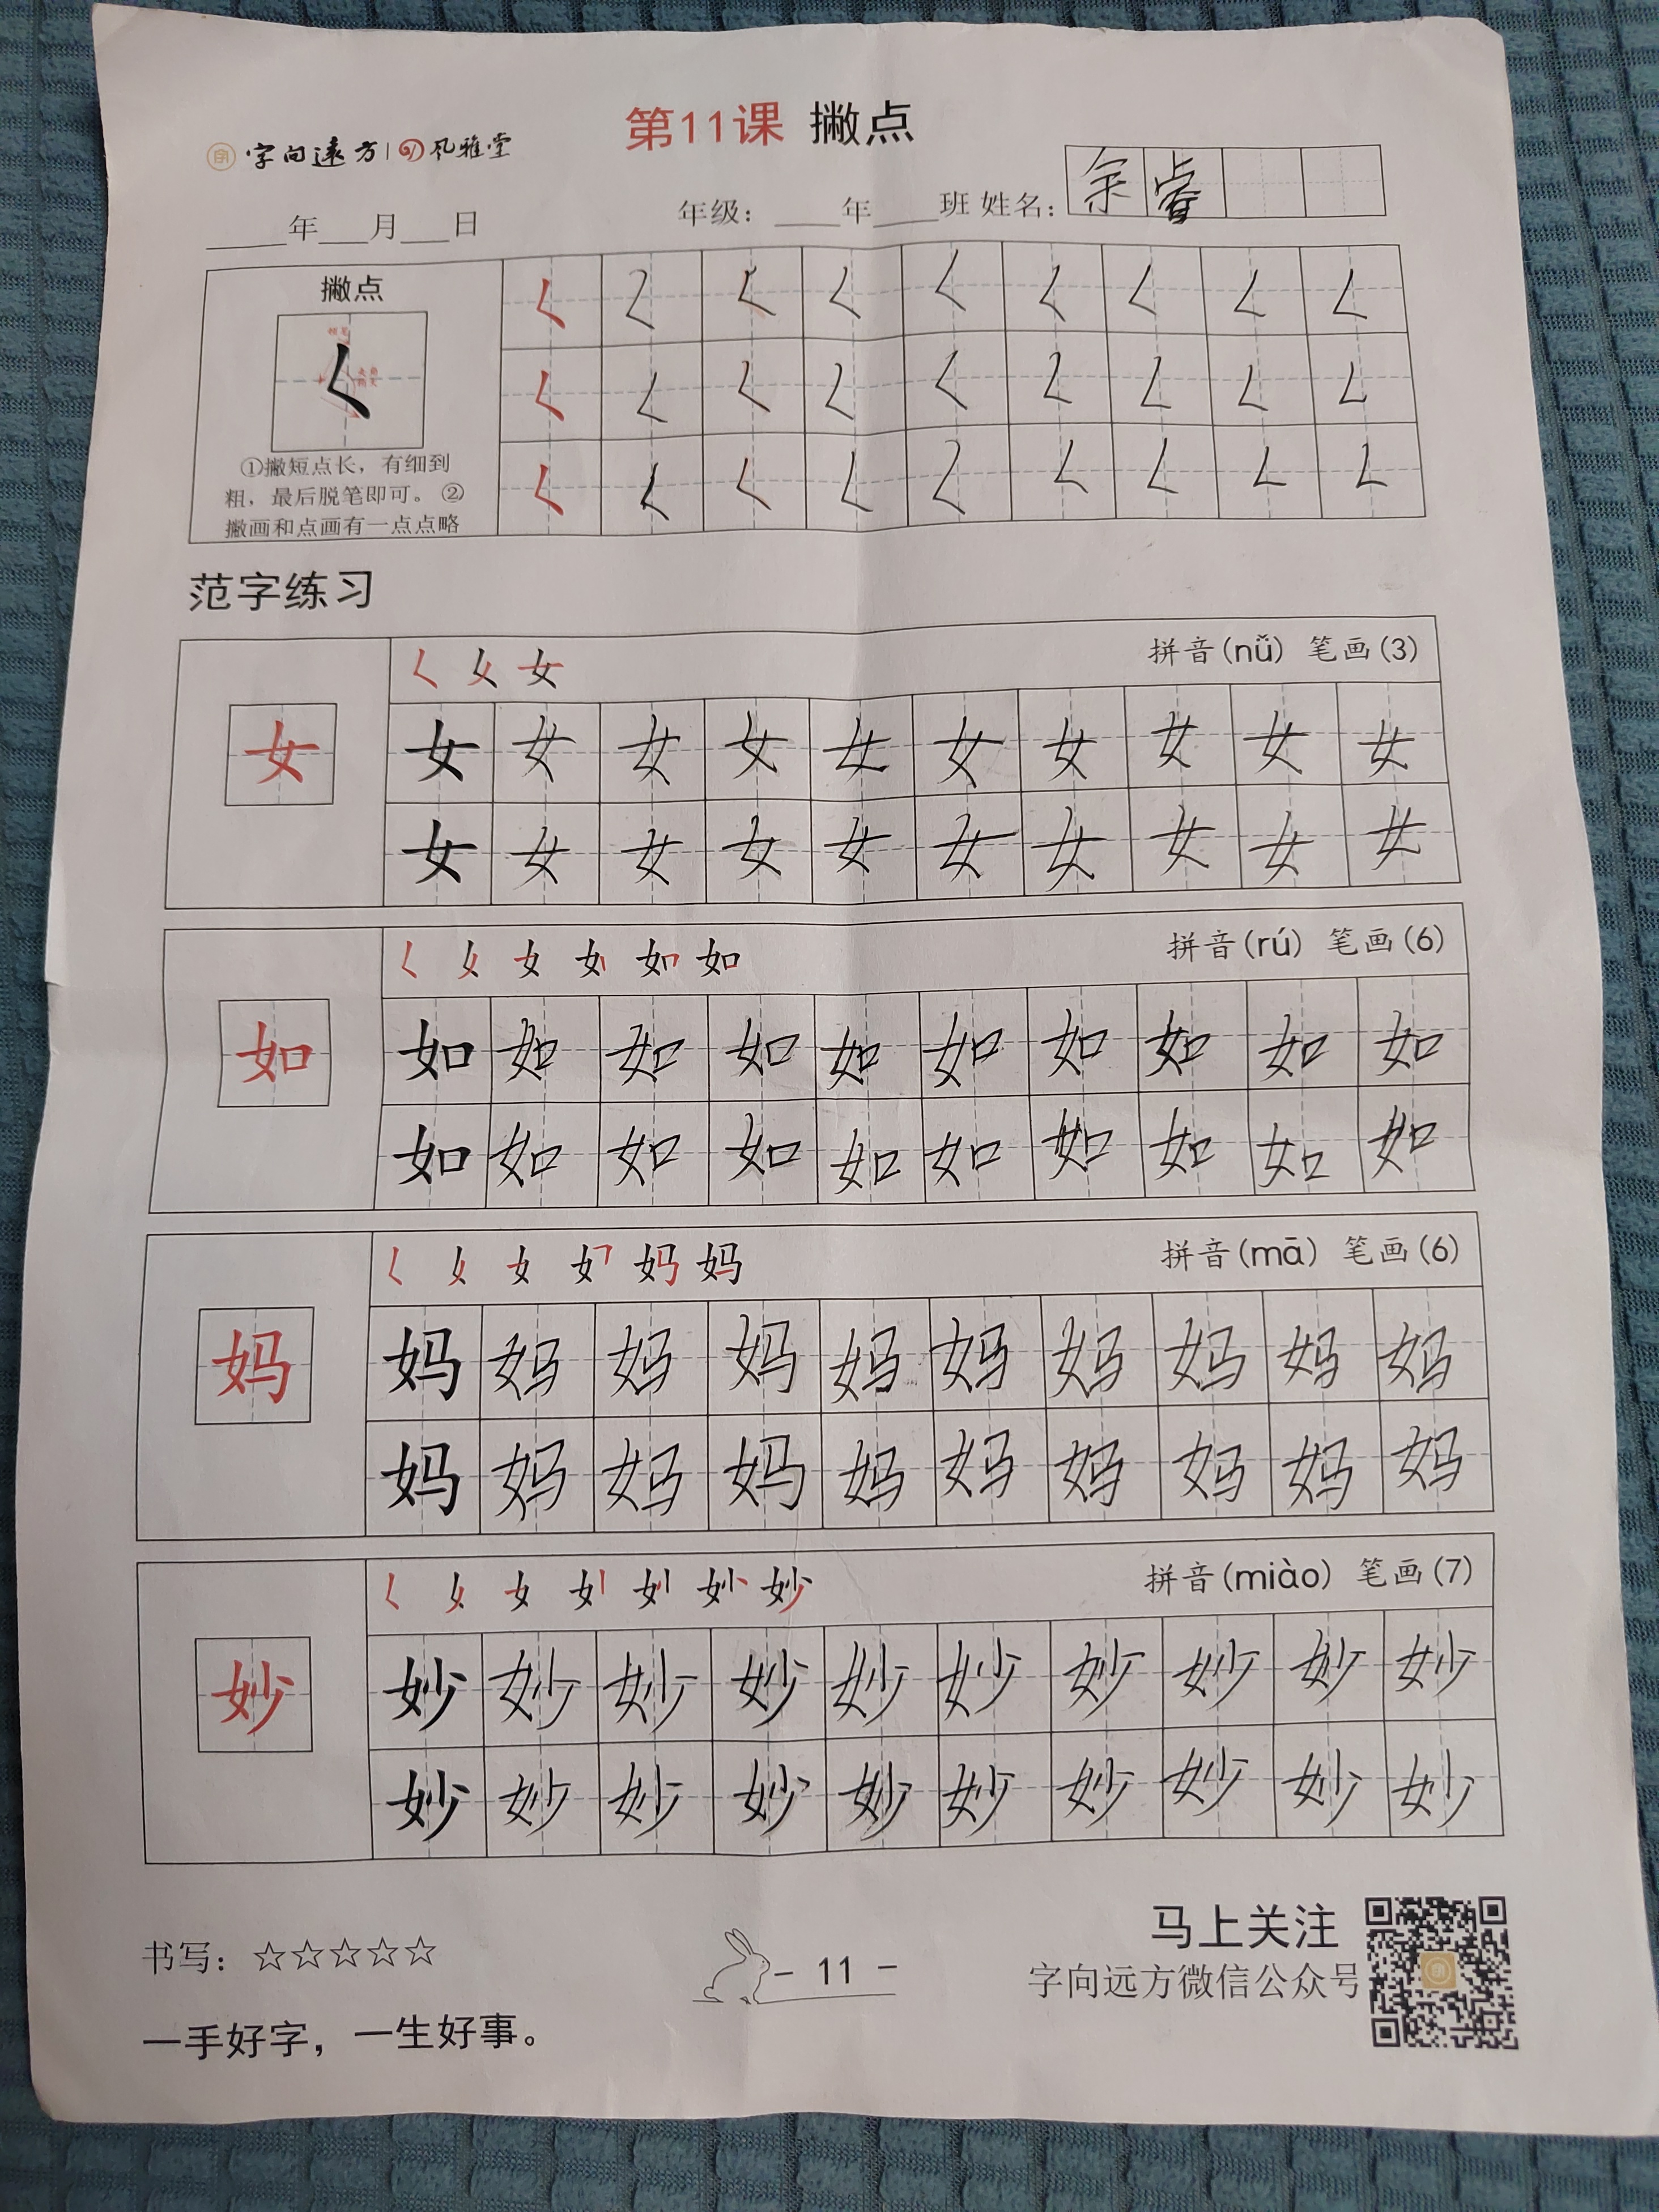 字向遠方 风雅堂
第11课 撇点
____年___月___日 年级：____年____班 姓名：余睿
撇点
①撇短点长，有细到
粗，最后脱笔即可。②
撇画和点画有一点点略
𡿨 𡿨 𡿨 𡿨 𡿨 𡿨 𡿨 𡿨 𡿨
𡿨 𡿨 𡿨 𡿨 𡿨 𡿨 𡿨 𡿨 𡿨
𡿨 𡿨 𡿨 𡿨 𡿨 𡿨 𡿨 𡿨 𡿨
范字练习
拼音(nǚ) 笔画(3)
女
女 女 女 女 女 女 女 女 女 女
女 女 女 女 女 女 女 女 女 女
拼音(rú) 笔画(6)
如
如 如 如 如 如 如 如 如 如 如
如 如 如 如 如 如 如 如 如 如
拼音(mā) 笔画(6)
妈
妈 妈 妈 妈 妈 妈 妈 妈 妈 妈
妈 妈 妈 妈 妈 妈 妈 妈 妈 妈
拼音(miào) 笔画(7)
妙
妙 妙 妙 妙 妙 妙 妙 妙 妙 妙
妙 妙 妙 妙 妙 妙 妙 妙 妙 妙
书写：☆☆☆☆☆
一手好字，一生好事。
- 11 -
马上关注
字向远方微信公众号